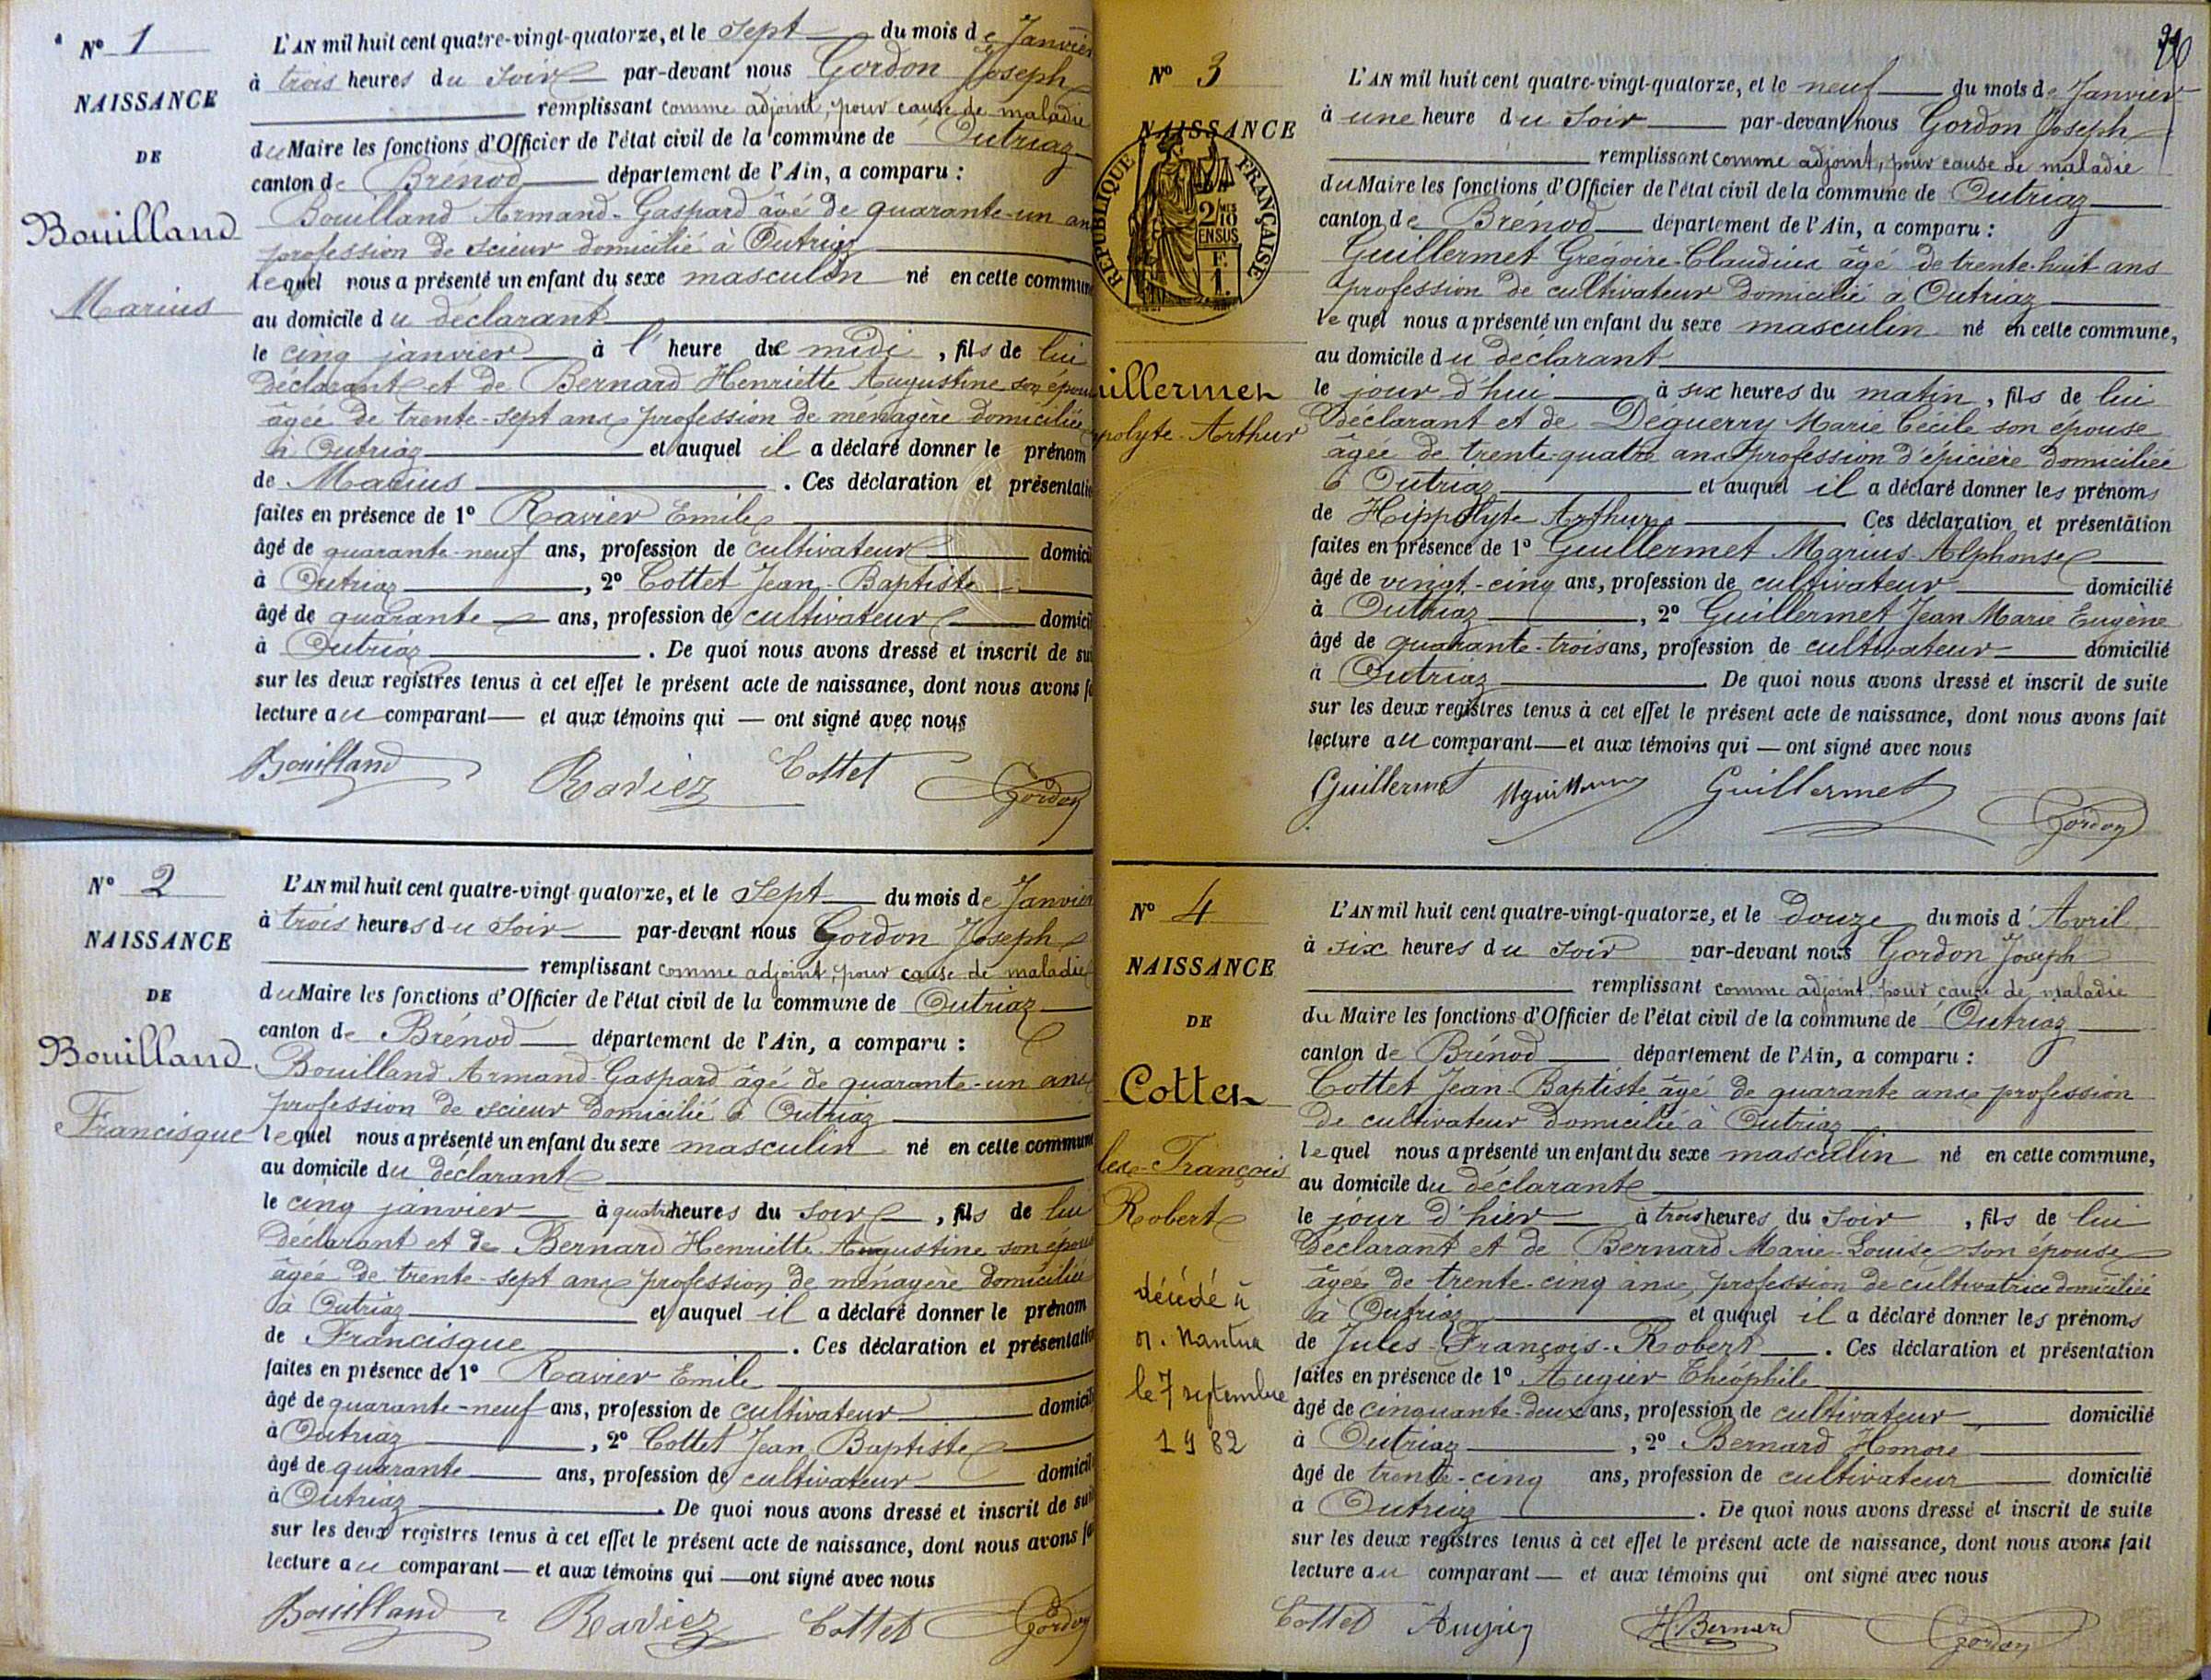 N° 1
NAISSANCE
DE
Bouilland
Marius
L'AN mil huit cent quatre-vingt-quatorze, et le sept du mois de Janvier
à trois heures du soir par-devant nous Gordon Joseph
remplissant comme adjoint, pour cause de maladie
du Maire les fonctions d'Officier de l'état civil de la commune de Outriaz
canton de Brénod département de l'Ain, a comparu :
Bouilland Armand-Gaspard âgé de quarante-un an
profession de scieur domicilié à Outriaz
lequel nous a présenté un enfant du sexe masculin né en cette commun
au domicile du déclarant
le cinq janvier à l'heure de midi, fils de lui
déclarant et de Bernard Henriette Augustine son épou
âgée de trente-sept ans profession de ménagère domiciliée
à Outriaz et auquel il a déclaré donner le prénom
de Marius. Ces déclaration et présentati
faites en présence de 1° Ravier Emile
âgé de quarante-neuf ans, profession de cultivateur domici
à Outriaz, 2° Cottet Jean-Baptiste
âgé de quarante ans, profession de cultivateur domici
à Outriaz. De quoi nous avons dressé et inscrit de sui
sur les deux registres tenus à cet effet le présent acte de naissance, dont nous avons f
lecture au comparant — et aux témoins qui — ont signé avec nous
Bouilland Ravier Cottet Gordon
N° 2
NAISSANCE
DE
Bouilland
Francisque
L'AN mil huit cent quatre-vingt-quatorze, et le sept du mois de Janvier
à trois heures du soir par-devant nous Gordon Joseph
remplissant comme adjoint, pour cause de maladie
du Maire les fonctions d'Officier de l'état civil de la commune de Outriaz
canton de Brénod département de l'Ain, a comparu :
Bouilland Armand-Gaspard âgé de quarante-un ans
profession de scieur domicilié à Outriaz
lequel nous a présenté un enfant du sexe masculin né en cette commun
au domicile du déclarant
le cinq janvier à quatre heures du soir, fils de lui
déclarant et de Bernard Henriette Augustine son épou
âgée de trente-sept ans profession de ménagère domiciliée
à Outriaz et auquel il a déclaré donner le prénom
de Francisque. Ces déclaration et présentati
faites en présence de 1° Ravier Emile
âgé de quarante-neuf ans, profession de cultivateur domicil
à Outriaz, 2° Cottet Jean Baptiste
âgé de quarante ans, profession de cultivateur domicil
à Outriaz. De quoi nous avons dressé et inscrit de sui
sur les deux registres tenus à cet effet le présent acte de naissance, dont nous avons f
lecture au comparant — et aux témoins qui — ont signé avec nous
Bouilland Ravier Cottet Gordon
N° 3
NAISSANCE
RÉPUBLIQUE FRANÇAISE
2/10 MES
EN SUS
F.
1.
uillermet
polyte-Arthur
L'AN mil huit cent quatre-vingt-quatorze, et le neuf du mois de Janvier
à une heure du soir par-devant nous Gordon Joseph
remplissant comme adjoint, pour cause de maladie
du Maire les fonctions d'Officier de l'état civil de la commune de Outriaz
canton de Brénod département de l'Ain, a comparu :
Guillermet Grégoire-Claudius âgé de trente-huit ans
profession de cultivateur domicilié à Outriaz
lequel nous a présenté un enfant du sexe masculin né en cette commune,
au domicile du déclarant
le jour d'hui à six heures du matin, fils de lui
déclarant et de Déguerry Marie Cécile son épouse
âgée de trente-quatre ans profession d'épicière domiciliée
à Outriaz et auquel il a déclaré donner les prénoms
de Hippolyte Arthur. Ces déclaration et présentation
faites en présence de 1° Guillermet Marius Alphonse
âgé de vingt-cinq ans, profession de cultivateur domicilié
à Outriaz, 2° Guillermet Jean Marie Eugène
âgé de quarante-trois ans, profession de cultivateur domicilié
à Outriaz. De quoi nous avons dressé et inscrit de suite
sur les deux registres tenus à cet effet le présent acte de naissance, dont nous avons fait
lecture au comparant — et aux témoins qui — ont signé avec nous
Guillermet Guillermet Gordon
N° 4
NAISSANCE
DE
Cottet
les-François
Robert
décédé à
Nantua
le 7 septembre
1982
L'AN mil huit cent quatre-vingt-quatorze, et le douze du mois d'Avril
à six heures du soir par-devant nous Gordon Joseph
remplissant comme adjoint, pour cause de maladie
du Maire les fonctions d'Officier de l'état civil de la commune de Outriaz
canton de Brénod département de l'Ain, a comparu :
Cottet Jean-Baptiste âgé de quarante ans profession
de cultivateur domicilié à Outriaz
lequel nous a présenté un enfant du sexe masculin né en cette commune,
au domicile du déclarant
le jour d'hier à trois heures du soir, fils de lui
déclarant et de Bernard Marie-Louise son épouse
âgée de trente-cinq ans, profession de cultivatrice domiciliée
à Outriaz et auquel il a déclaré donner les prénoms
de Jules-François-Robert. Ces déclaration et présentation
faites en présence de 1° Augier Théophile
âgé de cinquante-deux ans, profession de cultivateur domicilié
à Outriaz, 2° Bernard Honoré
âgé de trente-cinq ans, profession de cultivateur domicilié
à Outriaz. De quoi nous avons dressé et inscrit de suite
sur les deux registres tenus à cet effet le présent acte de naissance, dont nous avons fait
lecture au comparant — et aux témoins qui ont signé avec nous
Cottet Augier H Bernard Gordon